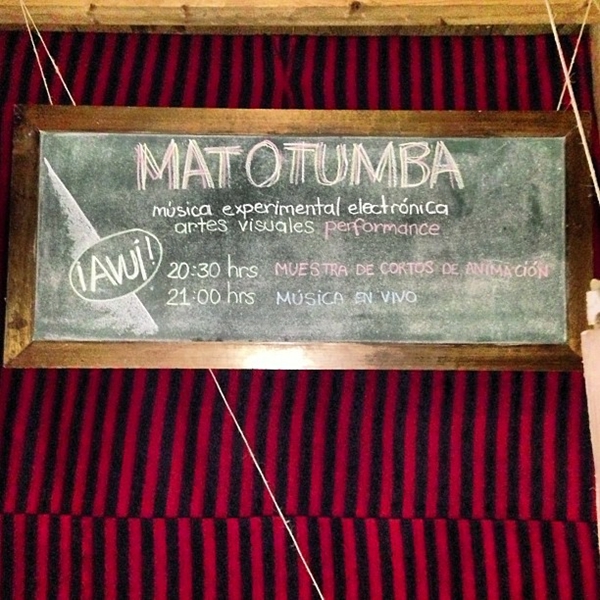 MATOTUMBA
música experimental electrónica
artes visuales performance
¡AVUÍ!
20:30 hrs MUESTRA DE CORTOS DE ANIMACIÓN
21:00 hrs MÚSICA EN VIVO